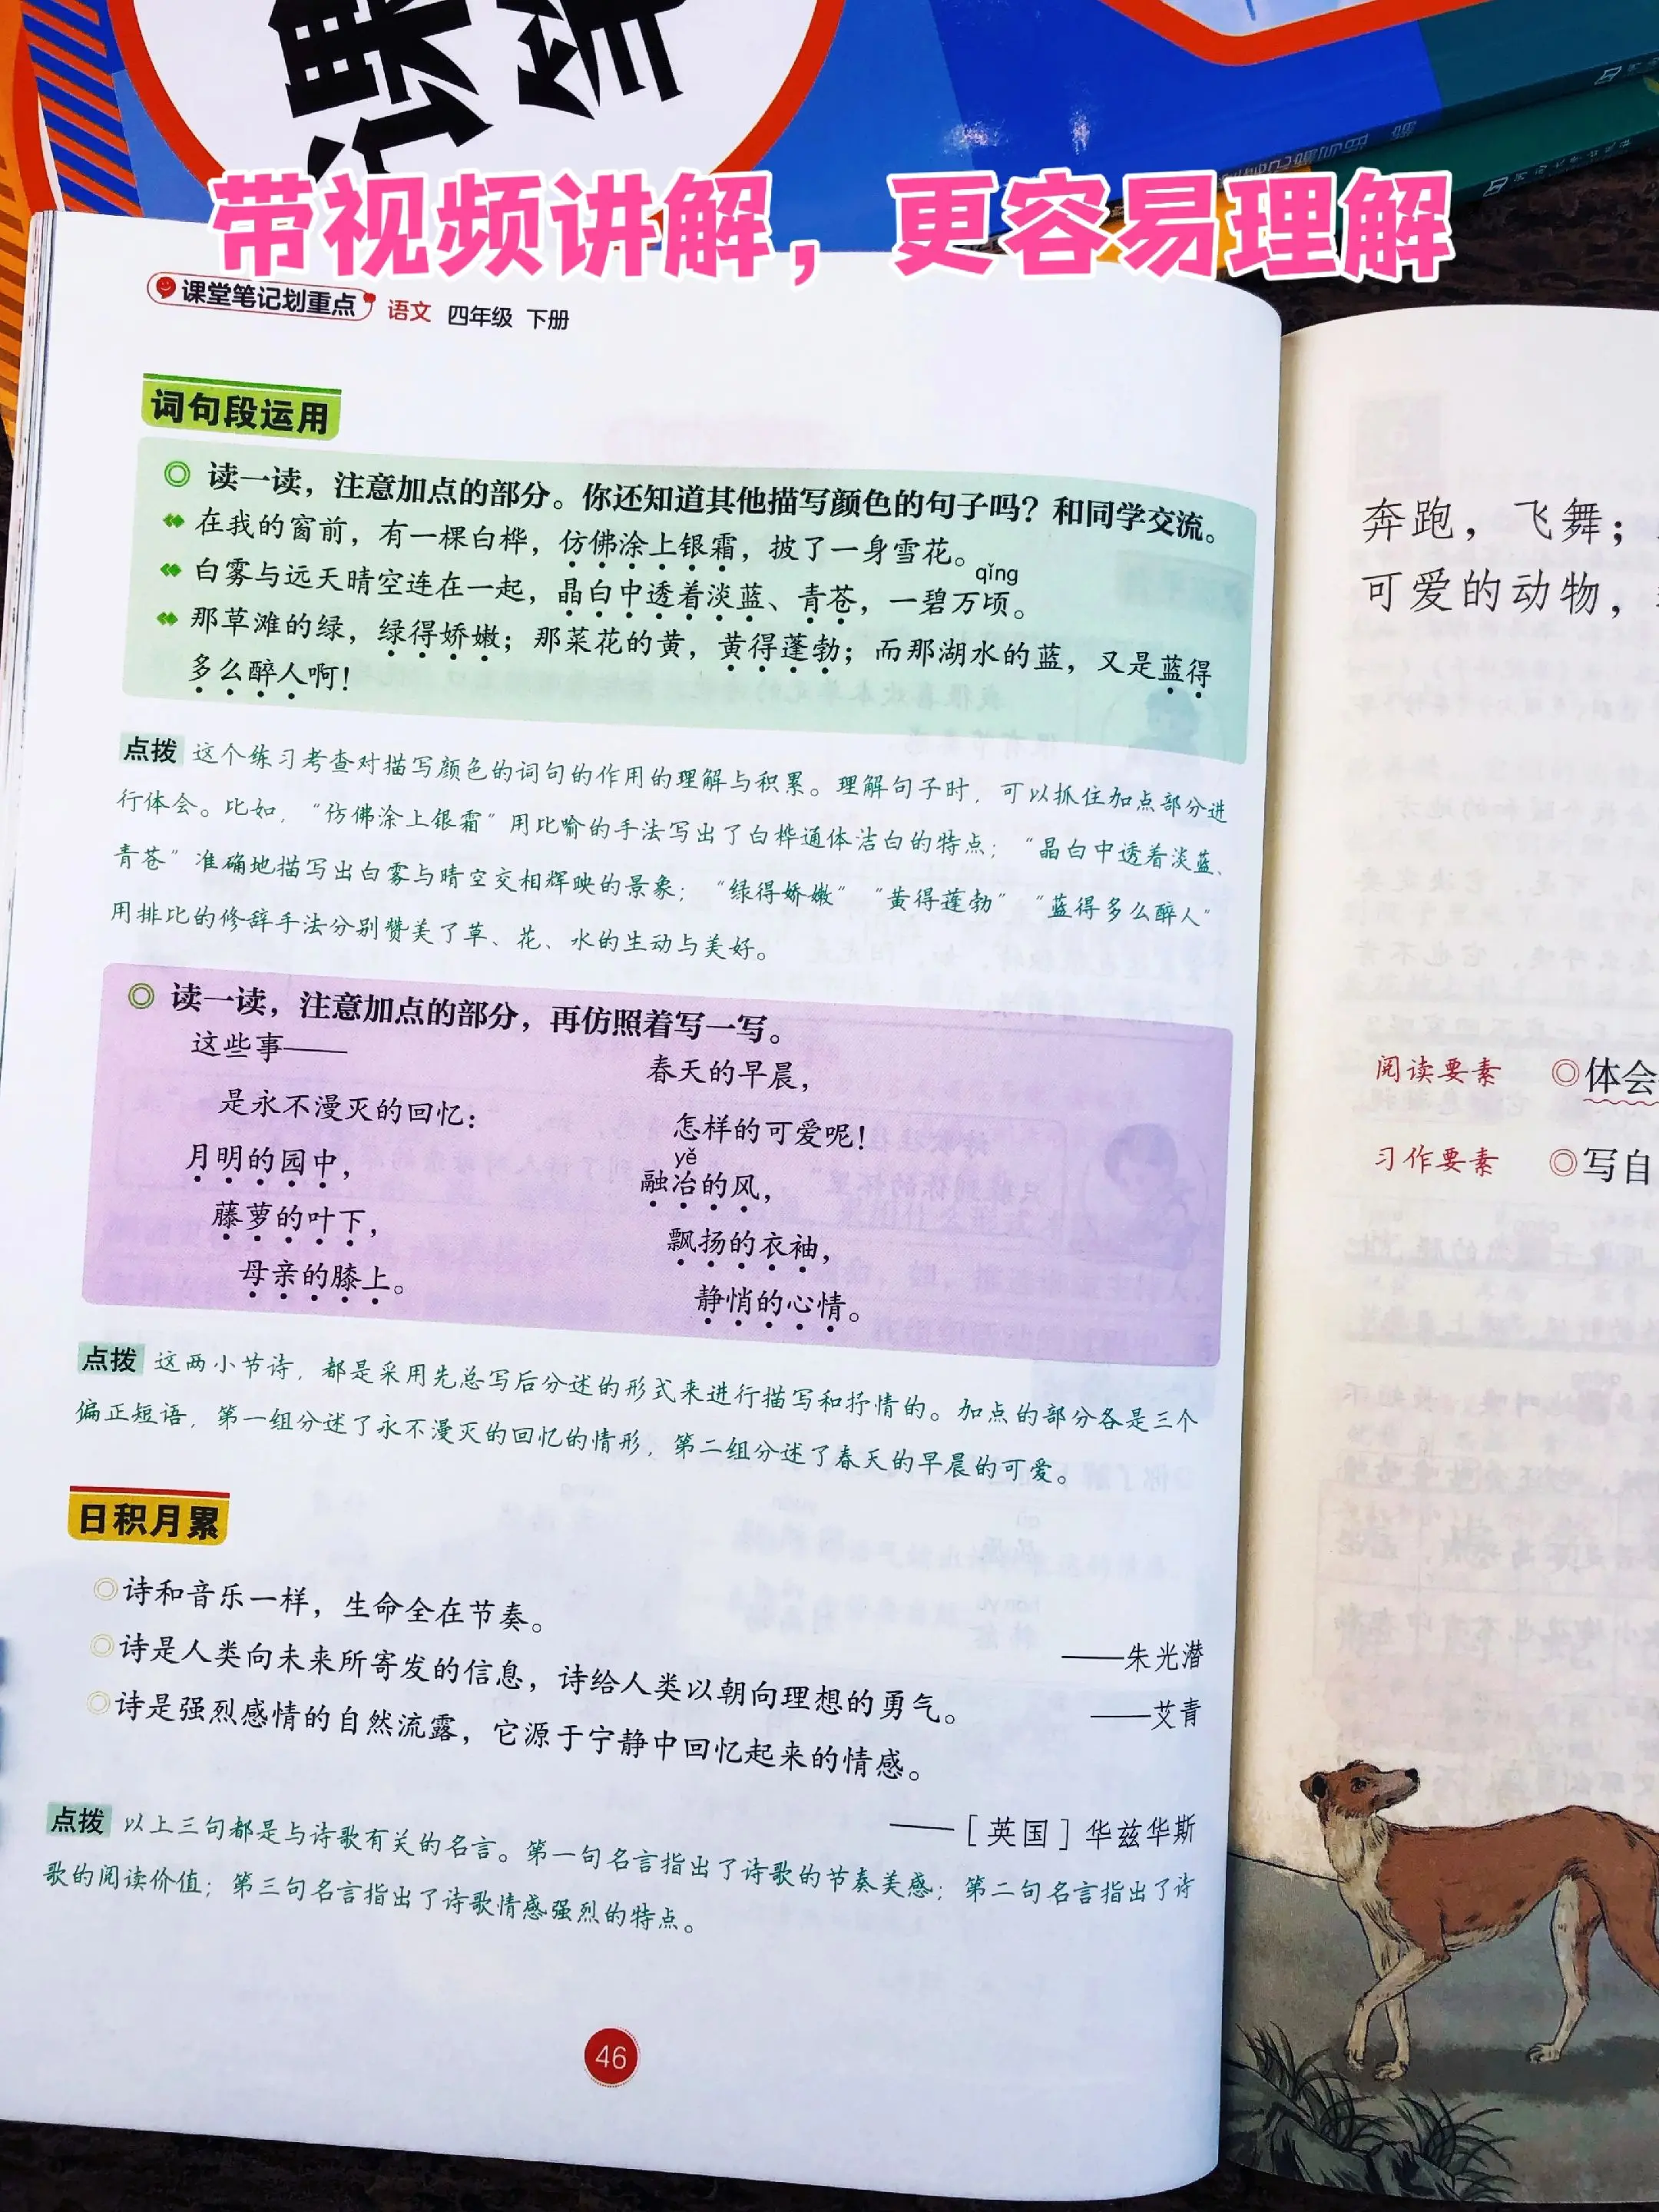 课
堂
笔
带视频讲解，更容易理解
课堂笔记划重点 语文 四年级 下册
词句段运用
◎ 读一读，注意加点的部分。你还知道其他描写颜色的句子吗？和同学交流。
在我的窗前，有一棵白桦，仿佛涂上银霜，披了一身雪花。
qǐng
白雾与远天晴空连在一起，晶白中透着淡蓝、青苍，一碧万顷。
那草滩的绿，绿得娇嫩；那菜花的黄，黄得蓬勃；而那湖水的蓝，又是蓝得
多么醉人啊！
点拨 这个练习考查对描写颜色的词句的作用的理解与积累。理解句子时，可以抓住加点部分进
行体会。比如，“仿佛涂上银霜”用比喻的手法写出了白桦通体洁白的特点；“晶白中透着淡蓝、
青苍”准确地描写出白雾与晴空交相辉映的景象；“绿得娇嫩”“黄得蓬勃”“蓝得多么醉人”
用排比的修辞手法分别赞美了草、花、水的生动与美好。
◎ 读一读，注意加点的部分，再仿照着写一写。
这些事——
是永不漫灭的回忆：
月明的园中，
藤萝的叶下，
母亲的膝上。
春天的早晨，
怎样的可爱呢！
yě
融冶的风，
飘扬的衣袖，
静悄的心情。
点拨 这两小节诗，都是采用先总写后分述的形式来进行描写和抒情的。加点的部分各是三个
偏正短语，第一组分述了永不漫灭的回忆的情形，第二组分述了春天的早晨的可爱。
日积月累
◎诗和音乐一样，生命全在节奏。
——朱光潜
◎诗是人类向未来所寄发的信息，诗给人类以朝向理想的勇气。
——艾青
◎诗是强烈感情的自然流露，它源于宁静中回忆起来的情感。
——［英国］华兹华斯
点拨 以上三句都是与诗歌有关的名言。第一句名言指出了诗歌的节奏美感；第二句名言指出了诗
歌的阅读价值；第三句名言指出了诗歌情感强烈的特点。
46
奔跑，飞舞；
可爱的动物，
阅读要素 ◎体会
习作要素 ◎写自